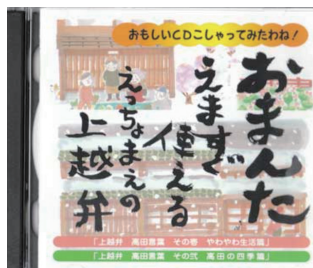 おもしいCDこしゃってみたわね！
おまんた
えますぐ
使える
えっちょまえの
上越弁
「上越弁　高田言葉　その壱　やわやわ生活篇」
「上越弁　高田言葉　その弐　高田の四季篇」